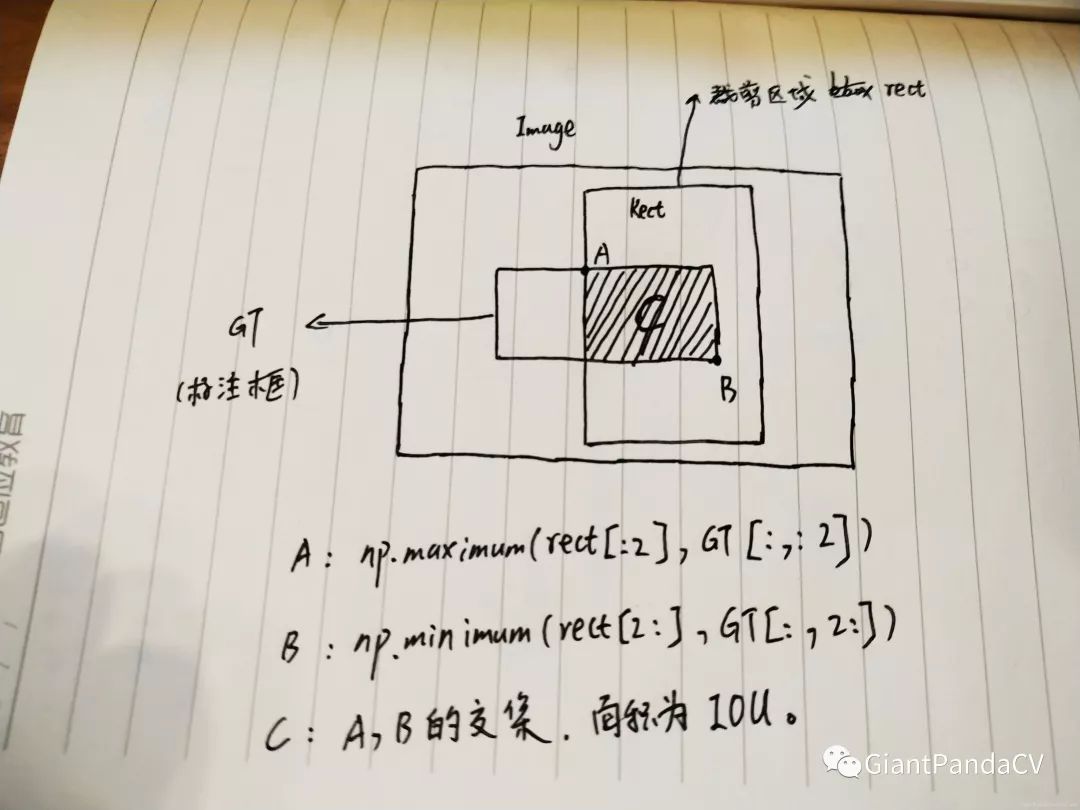 裁剪区域 rect
Image
Rect
A
C
GT
(标注框)
B
A: np.maximum(rect[:2], GT[:,:2])
B: np.minimum(rect[2:], GT[:,2:])
C: A,B的交集. 面积为IOU。
GiantPandaCV